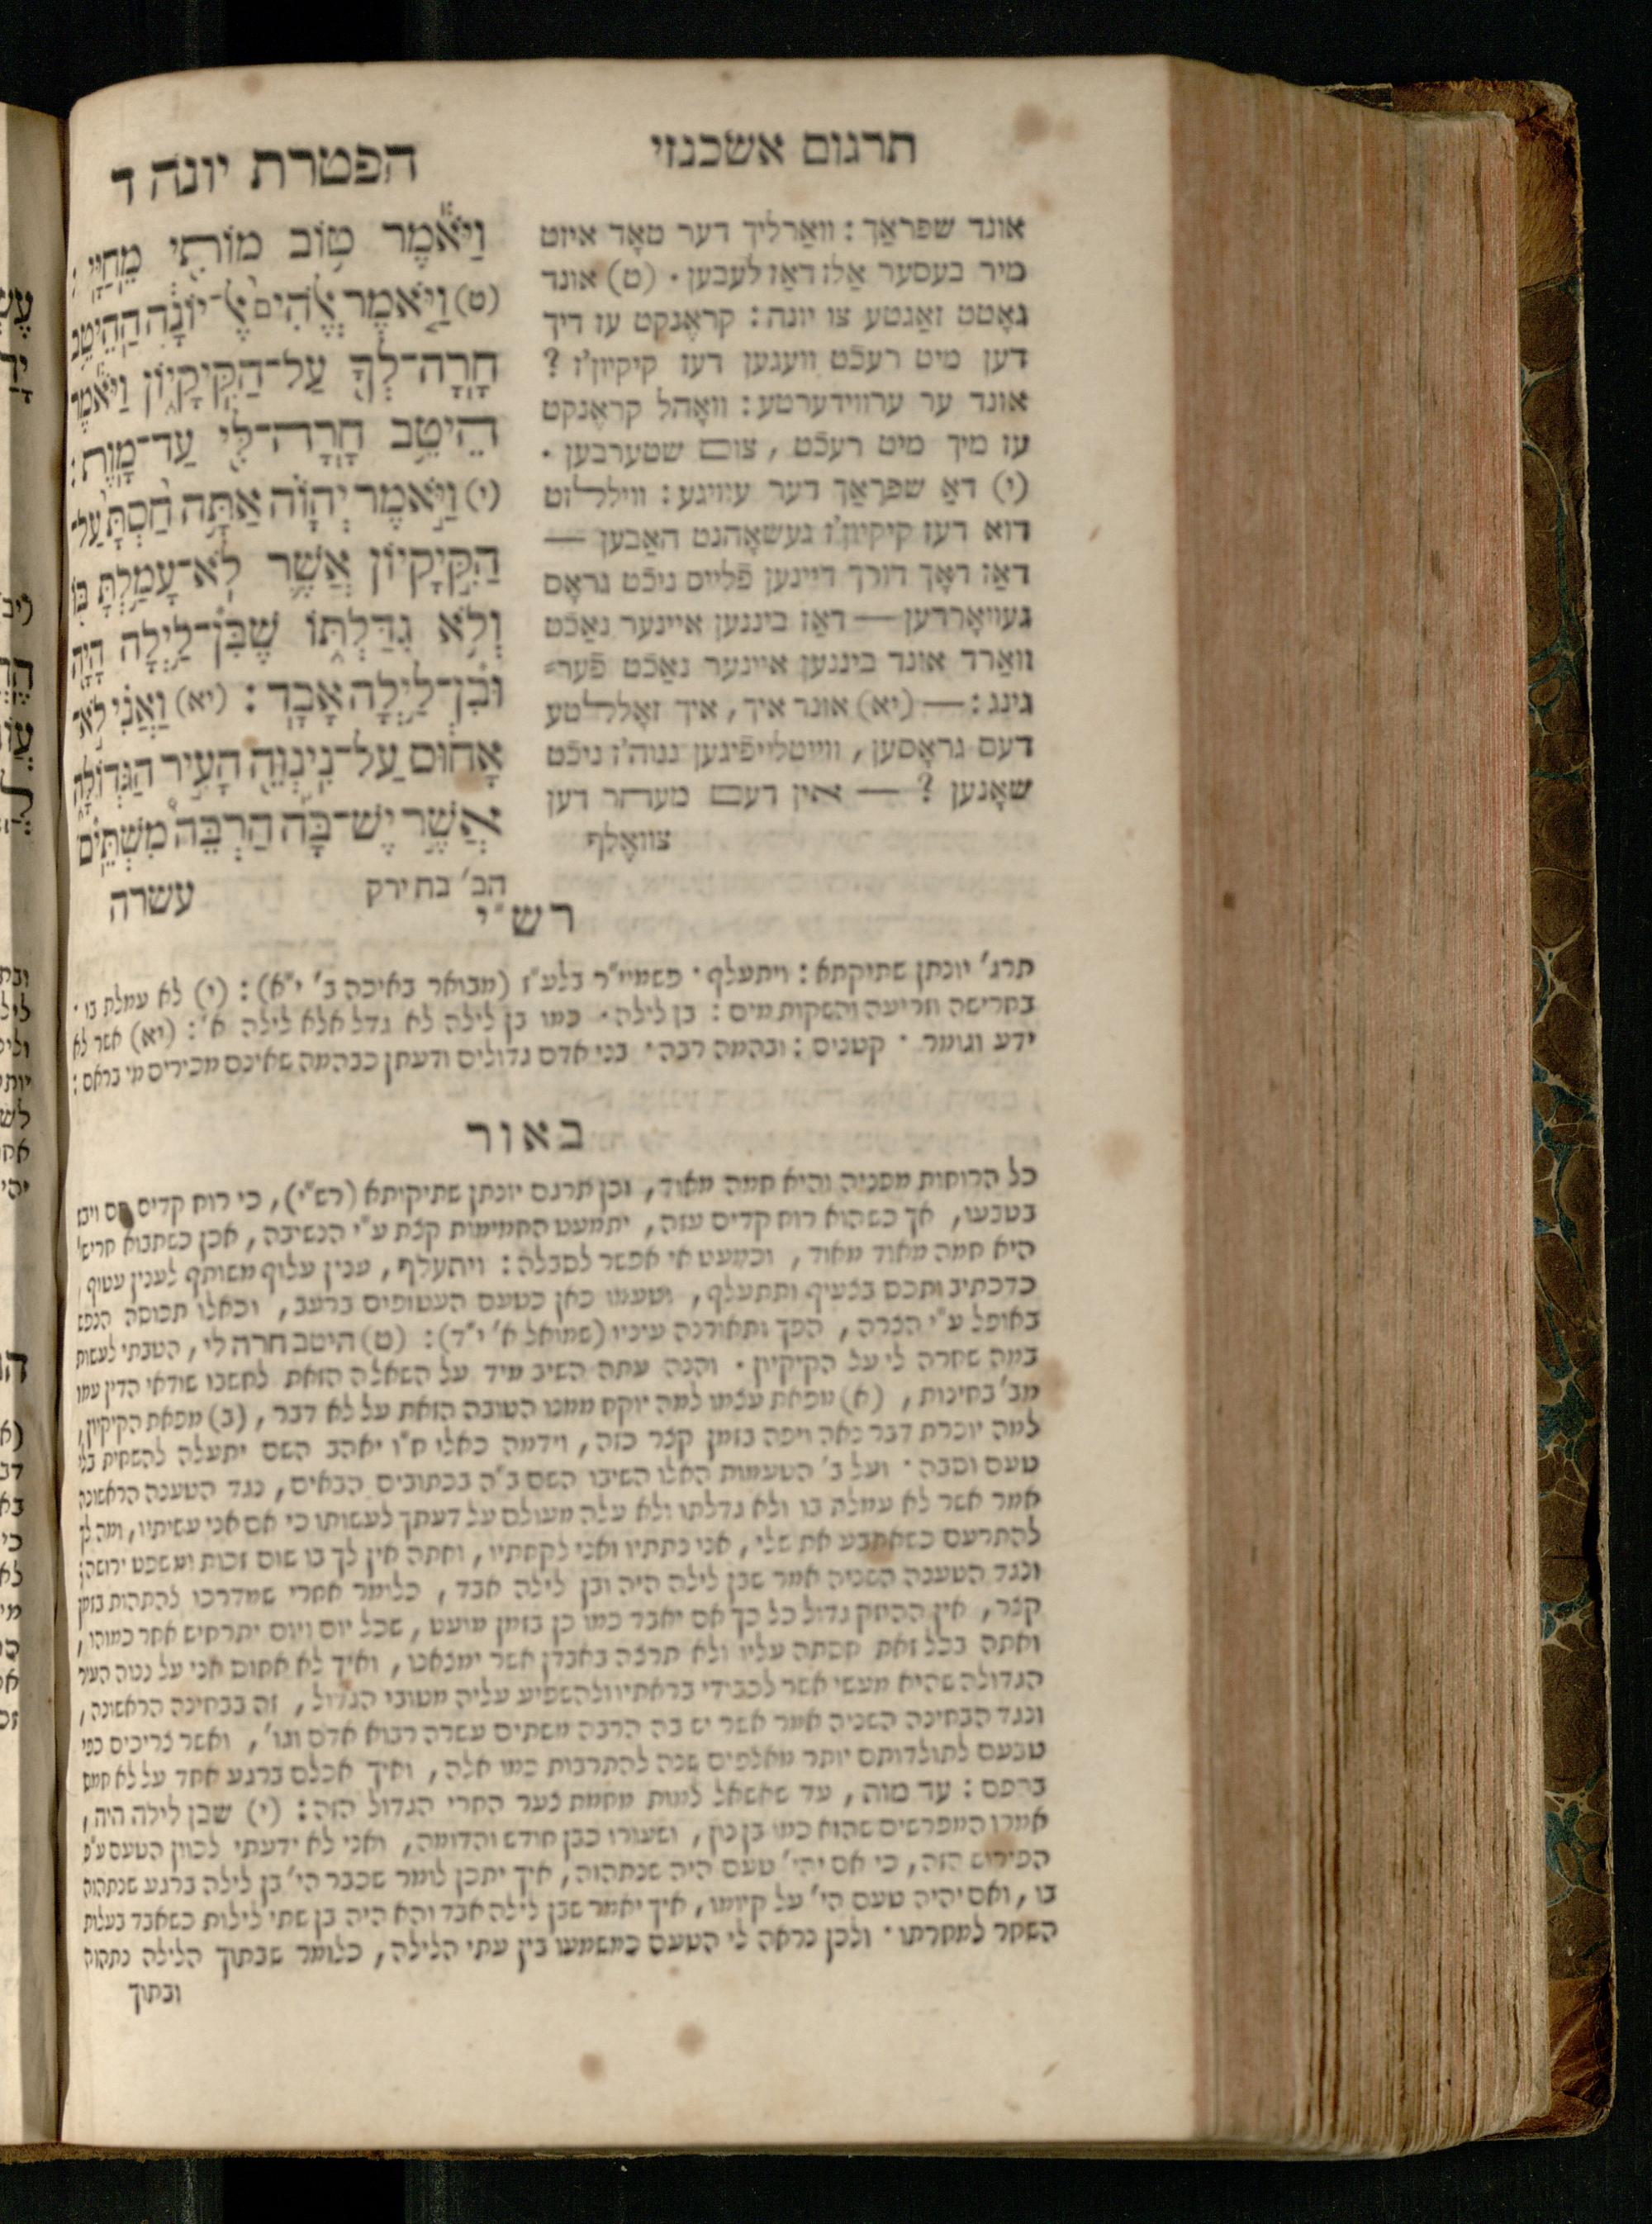 תרגום אשכנזי
הפטרת יונה ד
אונד שפראַך : וואַרליך דער טאָד איזט
מיר בעסער אַלז דאַז לעבען . (ט) אונד
גאָטט זאַגטע צו יונה : קראֶנקט עז דיך
דען מיט רעכֿט וועגען דעז קיקיון'ז ?
אונד ער ערווידערטע : וואָהל קראֶנקט
עז מיך מיט רעכֿט , צום שטערבען .
(י) דאַ שפראַך דער עוויגע : ווילל זט
דוא דעז קיקיון'ז געשאָהנט האַבען —
דאַז דאָך דורך דיינען פֿלייס ניכֿט גראָס
געוואָרדען — דאַז ביננען איינער נאַכֿט
וואַרד אונד ביננען איינער נאַכֿט פֿער=
גינג : — (יא) אונד איך , איך זאָללטע
דעס גראָסען , ווייטלייפֿיגען ננוה'ז ניכֿט
שאָנען ? — אין דעם מעהר דען
צוואֶלף
וַיֹּאמֶר טוֹב מוֹתִי מֵחַיָּי :
(ט) וַיֹּאמֶר אֱלֹהִים אֶל־יוֹנָה הַהֵיטֵב
חָרָה־לְךָ עַל־הַקִּיקָיוֹן וַיֹּאמֶר
הֵיטֵב חָרָה־לִי עַד־מָוֶת :
(י) וַיֹּאמֶר יְהוָֹה אַתָּה חַסְתָּ עַל־
הַקִּיקָיוֹן אֲשֶׁר לֹא־עָמַלְתָּ בּוֹ
וְלֹא גִדַּלְתּוֹ שֶׁבִּן־לַיְלָה הָיָה
וּבִן־לַיְלָה אָבָד : (יא) וַאֲנִי לֹא
אָחוּס עַל־נִינְוֵה הָעִיר הַגְּדוֹלָה
אֲשֶׁר יֶשׁ־בָּהּ הַרְבֵּה מִשְׁתֵּים
הב' בת ירק
עשרה
רש"י
תרג' יונתן שתיקתא : ויתעלף . פשמיי"ר בלע"ז (מבואר באיכה ב' י"א) : (י) לא עמלת בו .
בחרישה וזריעה והשקות מים : בן לילה . כמו בן לילה לא גדל אלא לילה א' : (יא) אשר לא
ידע וגומר . קטנים : ובהמה רבה . בני אדם גדולים ודעתן כבהמה שאינם מכירים מי בראם :
באור
כל הרוחות מפניה והיא חמה מאוד , וכן תרגם יונתן שתיקותא (רש"י) , כי רוח קדים חם ויבז
בטבעו , אך כשהוא רוח קדים עזה , יתמעט החמימות קצת ע"י הנשיבה , אכן כשתבוא חריש'
היא חמה מאוד מאוד , וכמעט אי אפשר לסבלה : ויתעלף , ענין עלוף משותף לענין עטוף ,
כדכתיב ותכס בצעיף ותתעלף , וטעמו כאן כטעם העטופים ברעב , וכאלו תכוסה הנפש
באופל ע"י הצרה , הפך ותאורנה עיניו (שמואל א' י"ד) : (ט) היטב חרה לי , הטבתי לעשות
במה שחרה לי על הקיקיון . והנה עתה השיב מיד על השאלה הזאת לחשבו שודאי הדין עמו
מב' בחינות , (א) מפאת עצמו למה יוקח ממנו הטובה הזאת על לא דבר , (ב) מפאת הקיקיון ,
למה יוכרת דבר נאה ויפה בזמן קצר כזה , וידמה כאלו ח"ו יאהב השם יתעלה להשחית בלי
טעם וסבה . ועל ב' הטעמות האלו השיבו השם ב"ה בכתובים הבאים , נגד הטענה הראשונה
אמר אשר לא עמלת בו ולא גדלתו ולא עלה מעולם על דעתך לעשותו כי אם אני עשיתיו , ומה לך
להתרעם כשאתבע את שלי , אני נתתיו ואני לקחתיו , ואתה אין לך בו שום זכות ומשפט ירושה ;
ונגד הטענה השניה אמר שבן לילה היה ובן לילה אבד , כלומר אחרי שמדרכו להתהות בזמן
קצר , אין ההיזק גדול כל כך אם יאבד כמו כן בזמן מועט , שכל יום ויום יתראיש אחר כמוהו ,
ואתה בכל זאת חסתה עליו ולא תרצה באבדן אשר ימצאנו , ואיך לא אחוס אני על ננוה העיר
הגדולה שהיא מעשי אשר לכבודי בראתיו ולהשפיע עליה מטובי הגדול , זה בבחינה הראשונה ,
ונגד הבחינה השניה אמר אשר יש בה הרבה משתים עשרה רבוא אדם וגו' , ואשר צריכים כפי
טבעם לתולדותם יותר מאלפים שנה להתרבות כמו אלה , ואיך אכלם ברגע אחד על לא חמס
בכפם : עד מות , עד שאשאל למות מחמת צער החרי הגדול הזה : (י) שבן לילה היה ,
אמרו המפרשים שהוא כמו בן נון , ושעורו כבן חודש והדומה , ואני לא ידעתי לכוון הטעם ע"פ
הפירוש הזה , כי אם יהי' טעם היה שנתהוה , איך יתכן לומר שכבר הי' בן לילה ברגע שנתהוה
בו , ואם יהיה טעם הי' על קיומו , איך יאמר שבן לילה אבד והא היה בן שתי לילות כשאבד בעלות
השחר למחרתו . ולכן נראה לי הטעם כמשמעו בין עתי הלילה , כלומר שבתוך הלילה נתהוה
ובתוך